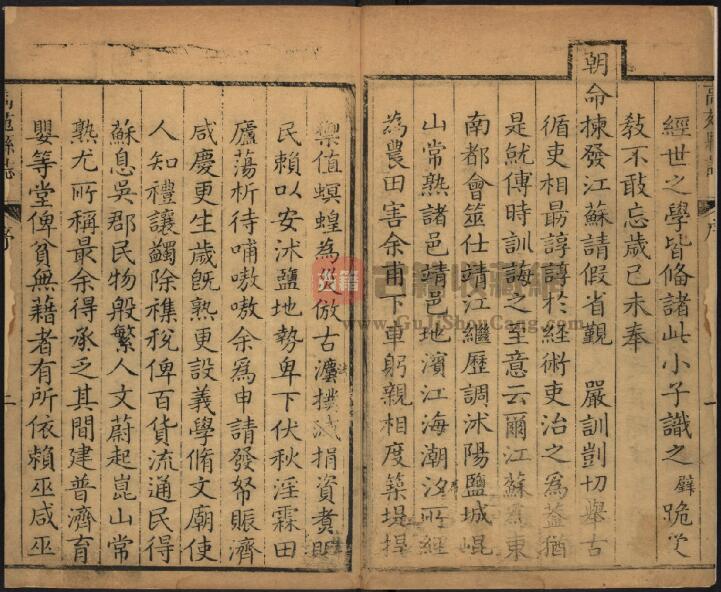 經世之學皆備諸此小子識之璧跪受
敎不敢忘歲己未奉
朝命揀發江蘇請假省覲 嚴訓剴切舉古
循吏相勗諄諄於經術吏治之為蓋猶
是就傅時訓誨之至意云爾江蘇為東
南都會筮仕靖江繼歷調沭陽鹽城崐
山常熟諸邑靖邑地濱江海潮汐所經
為農田害余甫下車躬親相度築堤捍
禦值螟蝗為災倣古瀗撲滅捐資煑
民賴以安沭鹽地勢卑下伏秋淫霖田
廬蕩析待哺嗷嗷余為申請發帑賑濟
咸慶更生歲旣熟更設義學脩文廟使
人知禮讓蠲除襍稅俾百貨流通民得
蘇息吳郡民物殷繁人文蔚起崑山常
熟尤所稱最余得承乏其間建普濟育
嬰等堂俾貧無藉者有所依賴巫咸巫
高苑縣誌
序
一
高苑縣誌
序
二
古籍收藏網
www.GuJiShouCang.com